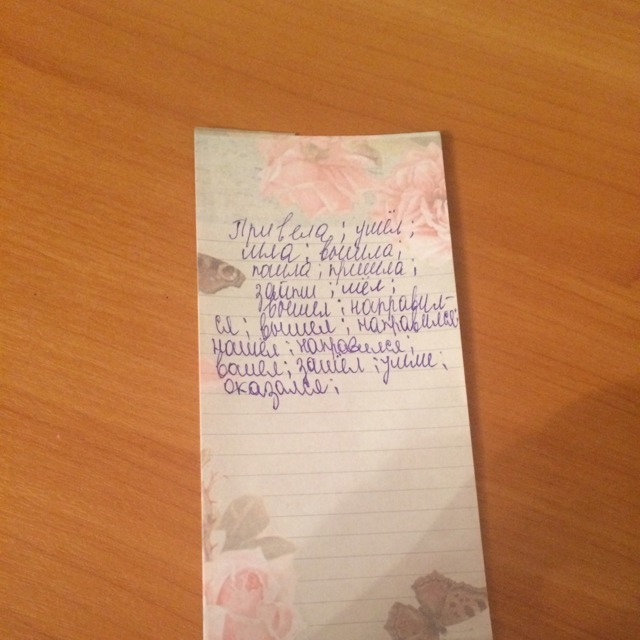 Привела; ушёл;
шла; вышла;
пошла; пришла;
зайти; шёл;
вышел; направил-
ся; вышел; направился;
нашёл; направился;
вошёл; зашёл; ушли;
оказался;